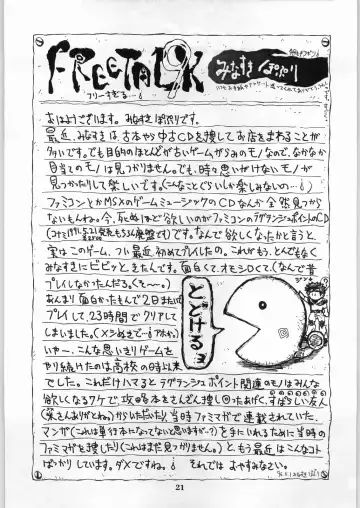 FREETALK
9
フリーすぎる…!
みなすき ぽぷり
おはようございます。みなすき ぽぷりです。
最近、みなすきは、古本や中古CDを捜してお店をまわることが
多いです。でも目的のほとんどが古いゲームがらみのモノなので、なかなか
目当てのモノは見つかりません。でも、時々思いがけないモノが
見つかったりして楽しいです。(こんなことぐらいしか楽しみないの…!)
ファミコンとかMSXのゲームミュージックのCDなんか全然見つから
ないもんね。今、死ぬほど欲しいのがファミコンのラグランジュポイントのCD
(コナミ 1991.5.21発売 もちろん廃盤でも)です。なんで欲しくなったかと言うと
実はこのゲーム、つい最近、初めてプレイしたの。これがもう、とんでもなく
みなすきにビビッときたんです。面白くて、オモシロくて。(なんで昔
プレイしなかったんだろ。くそ〜。)
あんまり面白かったもんで2日またいで
プレイして、23時間でクリアして
しまいました。(メシぬきで…!アホか。)
いや…こんな思いきりゲームを
やり続けたのは高校の時以来
でした。これだけハマると ラグランジュポイント関連のモノはみんな
欲しくなるワケで、攻略本をさんざん捜し回ったあげく、すばらしい友人
(栄さんありがとね。)からいただいたり、当時ファミマガで連載されていた、
マンガ(これは単行本になってないと思いますが…?)を手にいれるために当時の
ファミマガを捜したり(これはまだ見つかりません。)と、もう最近はこんなコト
ばっかりしています。ダメですね。! それでは おやすみなさい。
とどける ョ
21